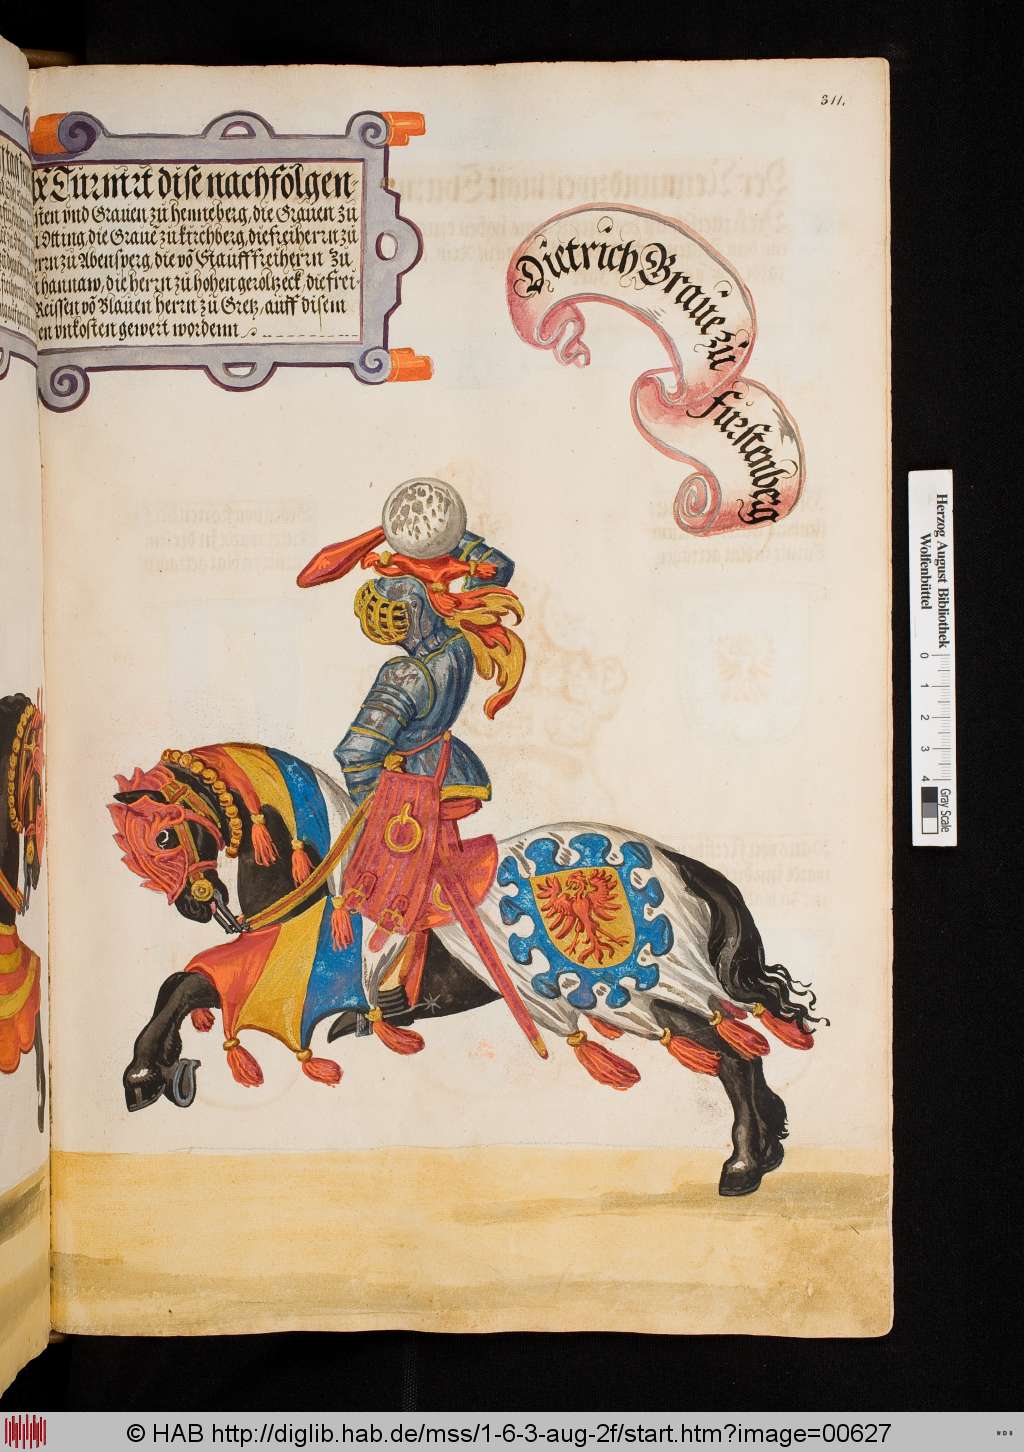 311.
Turnirt dise nachfölgen-
sten vnd Grauen zü henneberg, die Grauen zu
Otting, die Graue zü kirchberg, die freiherrn zü
rrn zü Abensperg, die vö Staufffreiherrn zü
hannaw, die herrn zü hohen geroltzeck, die frei-
Reissen vö Blauen herrn zü Gretz, auff disem
en vnkosten gewert wordenn
Dietrich Graue zü
fürstenberg
Herzog August Bibliothek
Wolfenbüttel
0 1 2 3 4
Gray Scale
© HAB http://diglib.hab.de/mss/1-6-3-aug-2f/start.htm?image=00627